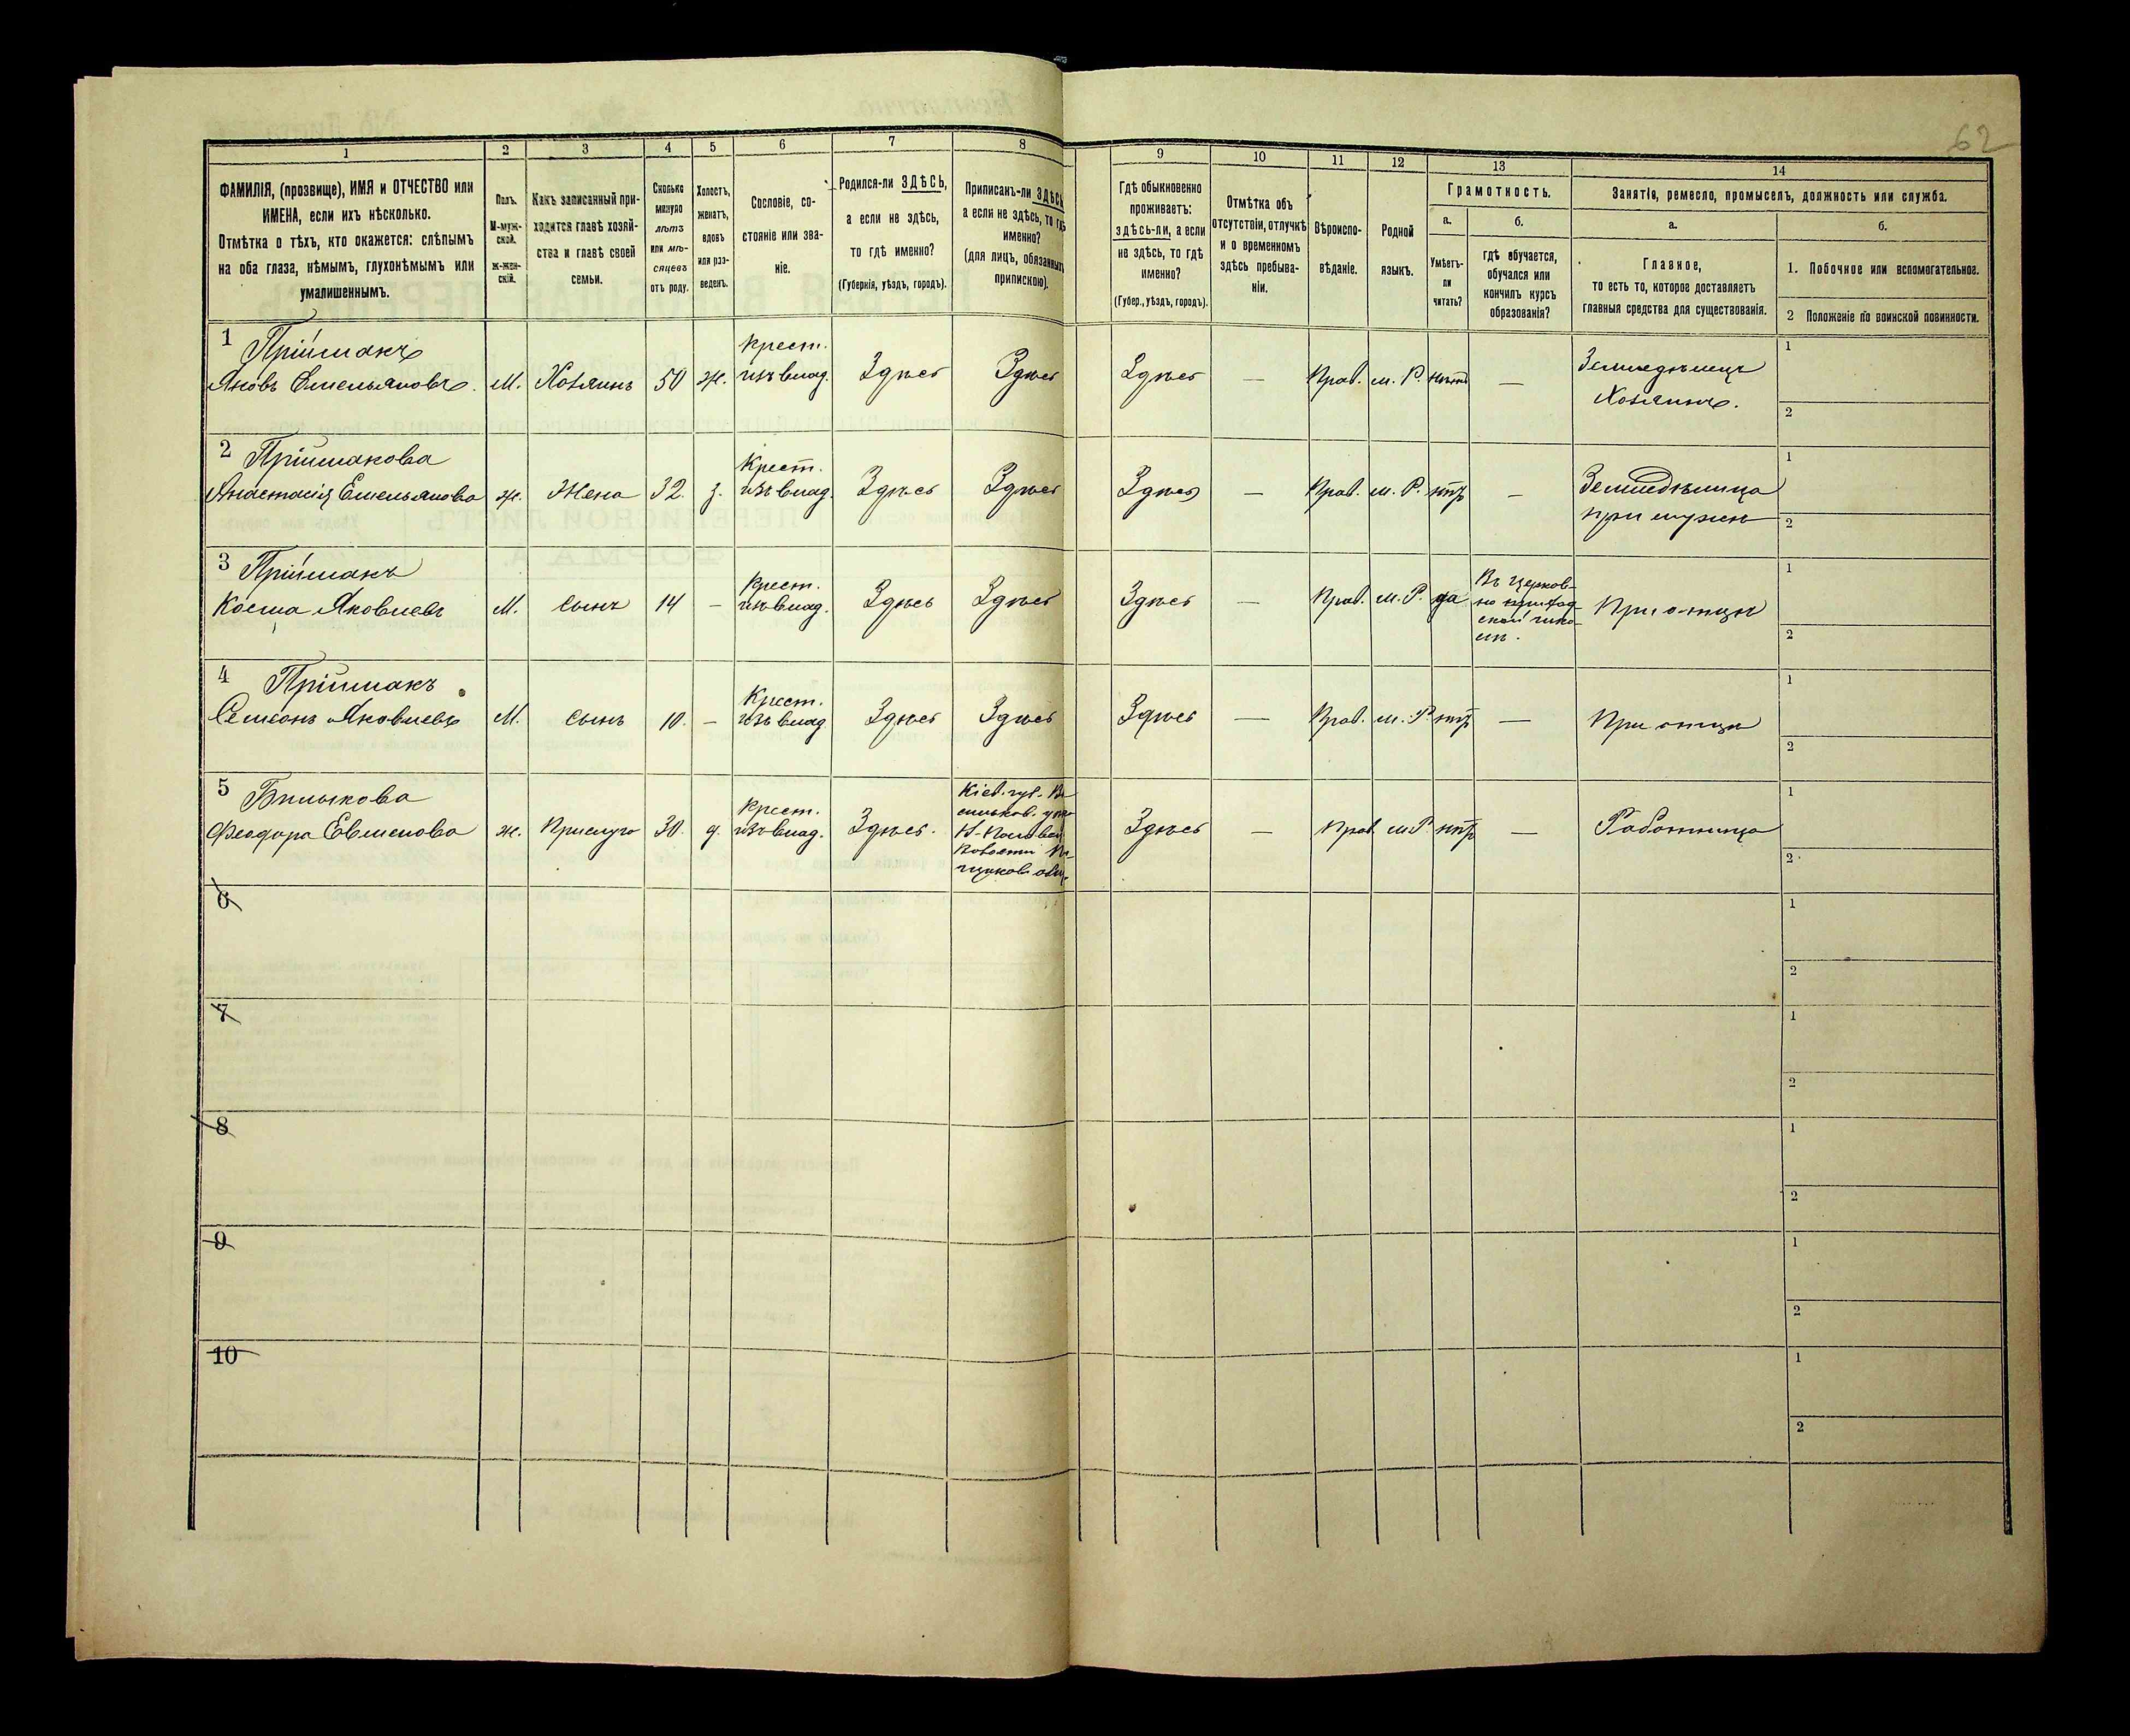 62
1
2
3
4
5
6
7
8
9
10
11
12
13
14
ФАМИЛІЯ, (прозвище), ИМЯ и ОТЧЕСТВО или
ИМЕНА, если ихъ нѣсколько.
Отмѣтка о тѣхъ, кто окажется: слѣпымъ
на оба глаза, нѣмымъ, глухонѣмымъ или
умалишеннымъ.
Полъ.
М-муж-
ской.
ж-жен-
скій.
Какъ записанный при-
ходится главѣ хозяй-
ства и главѣ своей
семьи.
Сколько
минуло
лѣтъ
или мѣ-
сяцевъ
отъ роду.
Холостъ,
женатъ,
вдовъ
или раз-
веденъ.
Сословіе, со-
стояніе или зва-
ніе.
Родился-ли ЗДѢСЬ,
а если не здѣсь,
то гдѣ именно?
(Губернія, уѣздъ, городъ).
Приписанъ-ли ЗДѢСЬ
а если не здѣсь, то гдѣ
именно?
(для лицъ, обязанныхъ
припискою).
Гдѣ обыкновенно
проживаетъ:
здѣсь-ли, а если
не здѣсь, то гдѣ
именно?
(Губер., уѣздъ, городъ).
Отмѣтка объ
отсутствіи, отлучкѣ
и о временномъ
здѣсь пребыва-
ніи.
Вѣроиспо-
вѣданіе.
Родной
языкъ.
Грамотность.
а.
Умѣетъ-
ли
читать?
б.
гдѣ обучается,
обучался или
кончилъ курсъ
образованія?
Занятія, ремесло, промыселъ, должность или служба.
а.
Главное,
то есть то, которое доставляетъ
главныя средства для существованія.
б.
1. Побочное или вспомогательное.
2 Положеніе по воинской повинности.
1 Пріймакъ
Яковъ Емельяновъ. М. Хозяинъ 50 ж. крест. изъ влад. Здѣсь Здѣсь Здѣсь — Прав. м. Р. нѣтъ — Земледѣлецъ Хозяинъ.
1
2
2 Пріймакова
Анастасія Емельянова ж. Жена 32. з. Крест. изъ влад. Здѣсь Здѣсь Здѣсь — Прав. м. Р. нтъ — Земледѣлица при мужѣ
1
2
3 Пріймакъ
Косма Яковлевъ М. сынъ 14 — Крест. изъ влад. Здѣсь Здѣсь Здѣсь — Прав. м. Р. да Въ церков- но приход- ской шко- лѣ. При отцѣ
1
2
4 Пріймакъ
Семеонъ Яковлевъ М. сынъ 10. — Крест. изъ влад Здѣсь Здѣсь Здѣсь — Прав. м. Р нтъ — При отцѣ
1
2
5 Билыкова
Феодора Евменова ж. Прислуга 30. д. Крест. изъ влад. Здѣсь. Кіев. губ. Ва
сильков. уѣз
волости
Здѣсь — Прав м Р нтъ — Работница
1
2
6
1
2
7
1
2
8
1
2
9
1
2
10
1
2